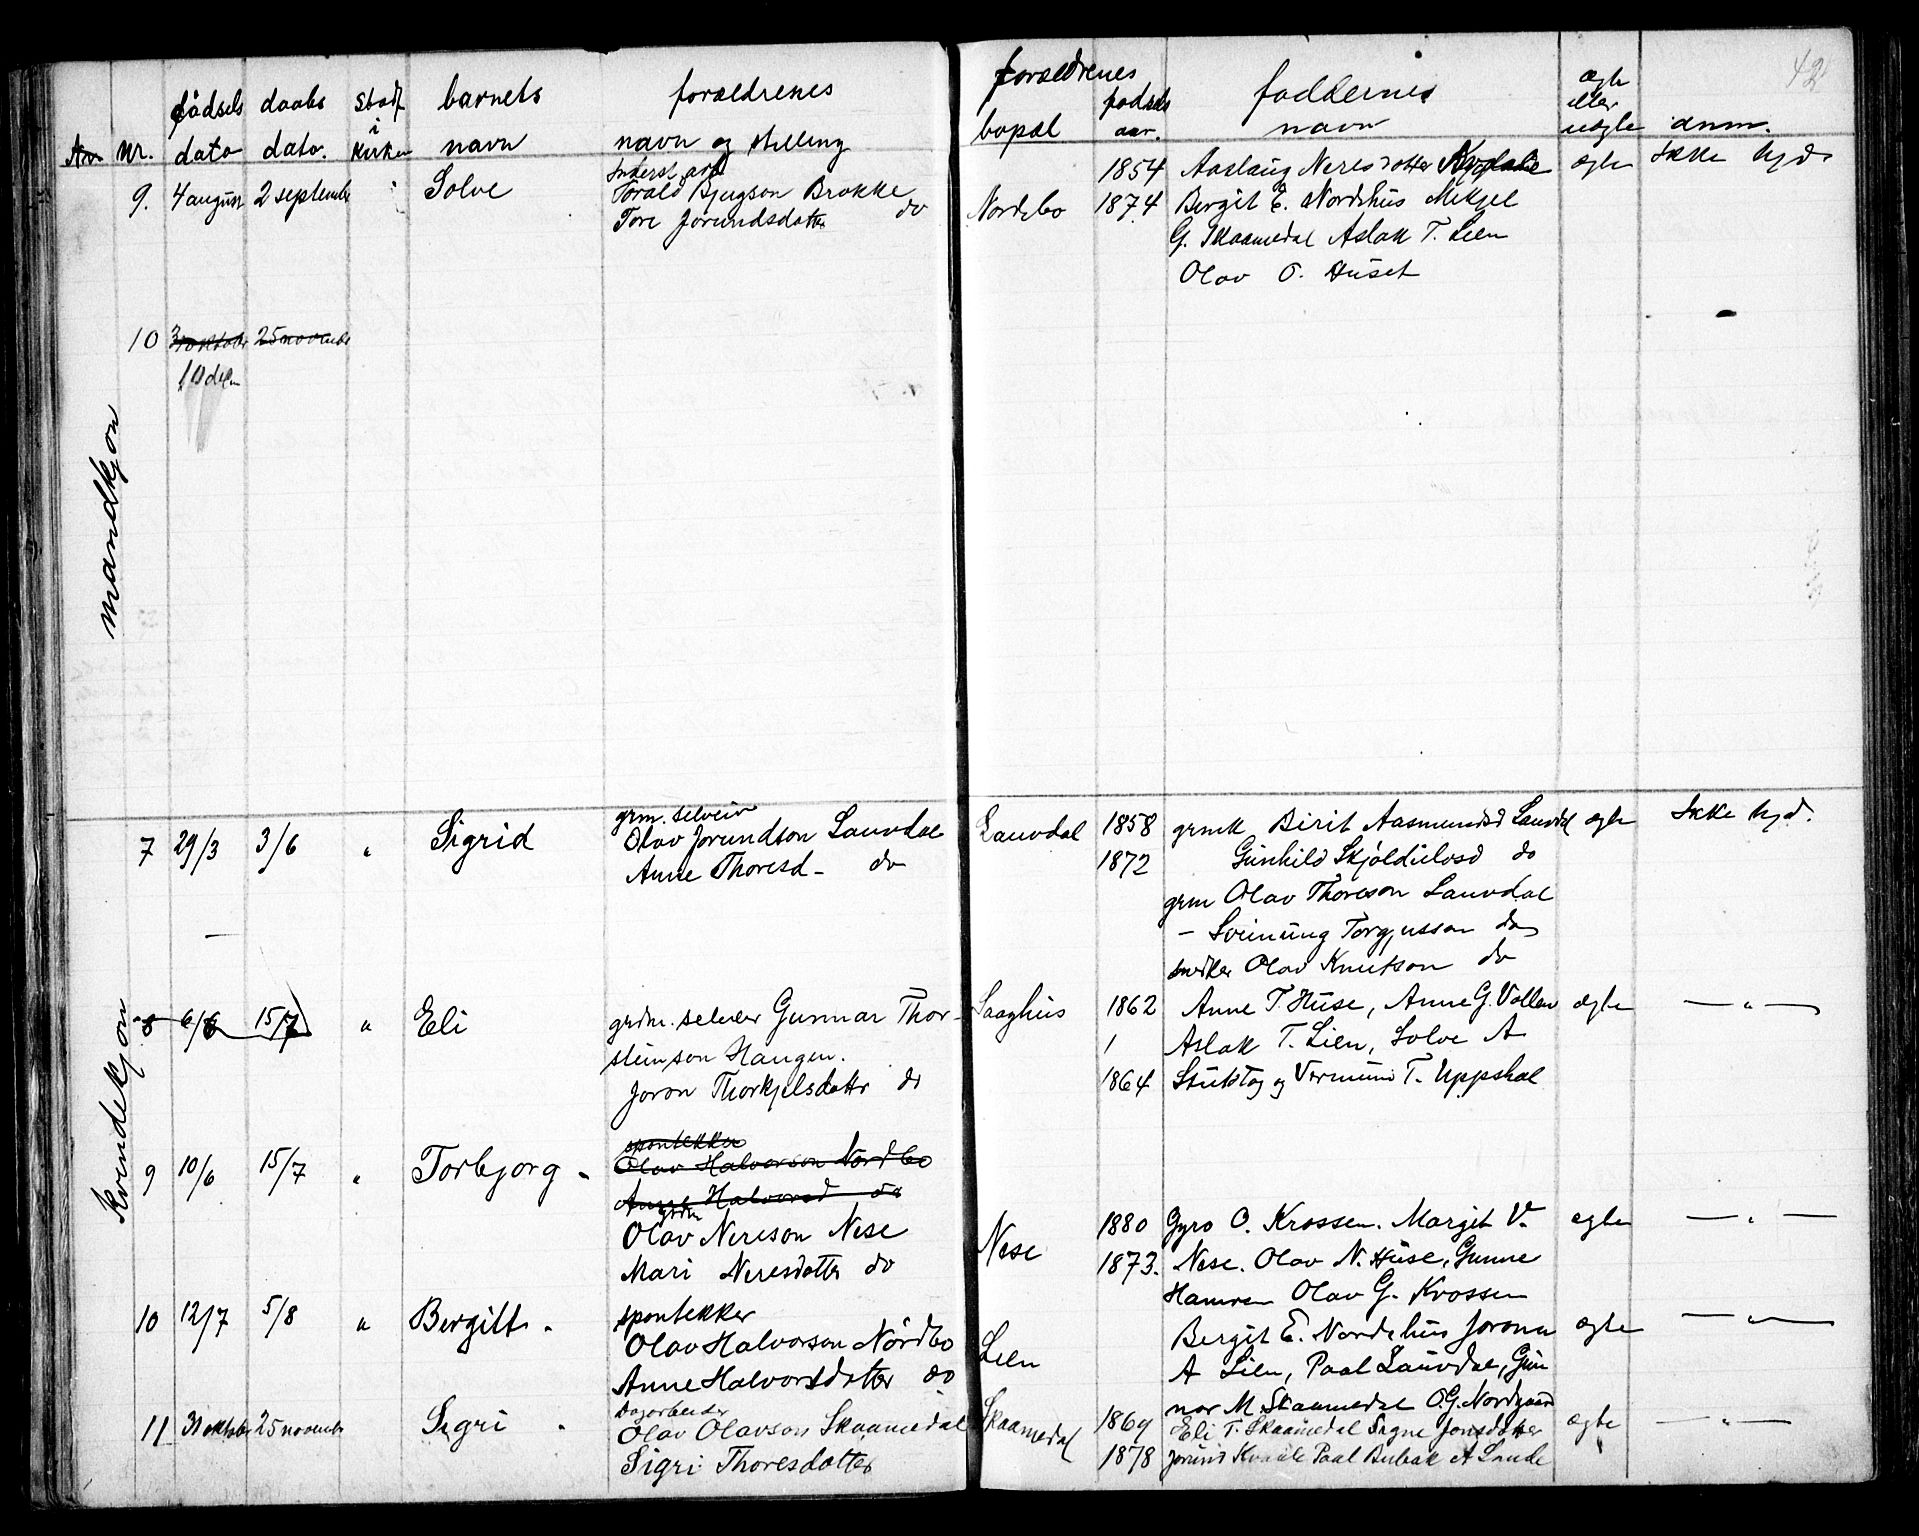 fødsels dato
daabs dato.
i Kirken
barnets navn
forældrenes navn og stilling
forældrenes bopæl
fødsels aar.
faddernes navn
ægte eller uægte
anm.
42
Nr.
mandkjøn
9. 4 august 2 september " Solve
Torald Bjugson Brokke
Tore Jorundsdatter do
Nordebo
1854
1874
Aaslaug Neresdotter
Bergit E. Nordhus Mikjel
G. Skaamedal Aslak T. Lien
Olav O. Huset
ægte Ikke hjd.
10 3 oktober 25 november
10 de
Kvindekjøn
7 29/3 3/6 " Sigrid
grm. selveier
Olav Jorundson Lauvdal
Anne Thoresd - do
Lauvdal
1858
1872
grmk Birit Aasmundsd Lauvdal
Gunhild do
grm Olav Thoreson Lauvdal
- Sveinung Torgjusson do
snedker Olav Knutson do
ægte Ikke hjd.
8 6/6 15/7 " Eli
grdm. selveier Gunnar Thor-
steinson Haugen.
Joron Thorkjelsdattr do
Haughus
1862
1
1864
Anne T. Huse, Anne G. Vollen
Aslak T. Lien, Solve A
og Vermund T. Uppstal
ægte — " —
9 10/6 15/7 " Torbjorg -
spontekker
Olav Halvorson Nordbo
Anne Halvorsd do
Olav Nereson Nese
Mari Neresdotter do
Nese
1880
1873.
Gyro O. Krossen. Margit V.
Nese. Olav N. Huse, Gunne
Hamren Olav G. Krossen
ægte — " —
10 12/7 5/8 " Bergitt -
spontekker
Olav Halvorson Nordbo
Anne Halvorsdotter do
Lien
Bergit E. Nordhus Jorunn
A Lien, Paal Lauvdal, Gun
nor M. Skaamedal O.G. Nordgaard
ægte — " —
11 31 oktober 25 november Sigri -
Dagarbeider
Olav Olavson Skaamedal
Sigri Thoresdotter
Skaamedal
1869
1878
Eli T. Skaamedal Signe Jonsdotter
Kvaale Paal Bubak A Lunde
ægte — " —